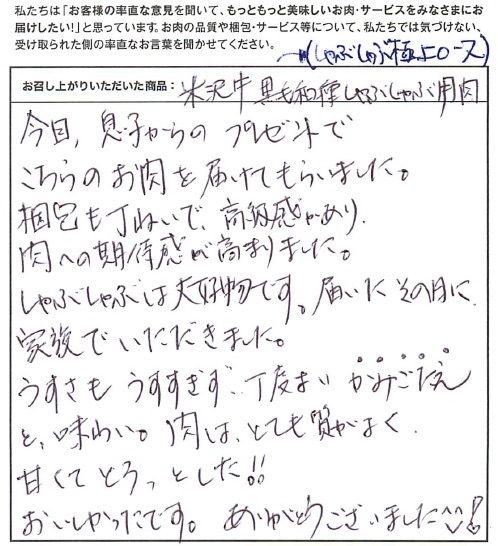 私たちは「お客様の率直な意見を聞いて、もっともっと美味しいお肉・サービスをみなさまにお
届けしたい!」と思っています。お肉の品質や梱包・サービス等について、私たちでは気づけない、
受け取られた側の率直なお言葉を聞かせてください。
(しゃぶしゃぶ極上ロース)
お召し上がりいただいた商品: 米沢牛黒毛和種しゃぶしゃぶ用肉
今日、息子からの プレゼントで
こちらの お肉を 届けてもらいました。
梱包も丁ねいで、高級感があり、
肉への期待感が高まりました。
しゃぶしゃぶは大好物です。届いたその日に
家族でいただきました。
うすさも うすすぎず、丁度よい かみごたえ
と、味わい。肉は、とても質がよく
甘くてとろっとした!!
おいしかったです。ありがとうございました^^!